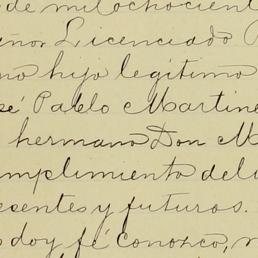 de mil ochocient
eñor Licenciado P
mo hijo legítimo
sé Pablo Martine
hermano Don M
mplimiento del
esentes y futuros.
doy fé conozco,